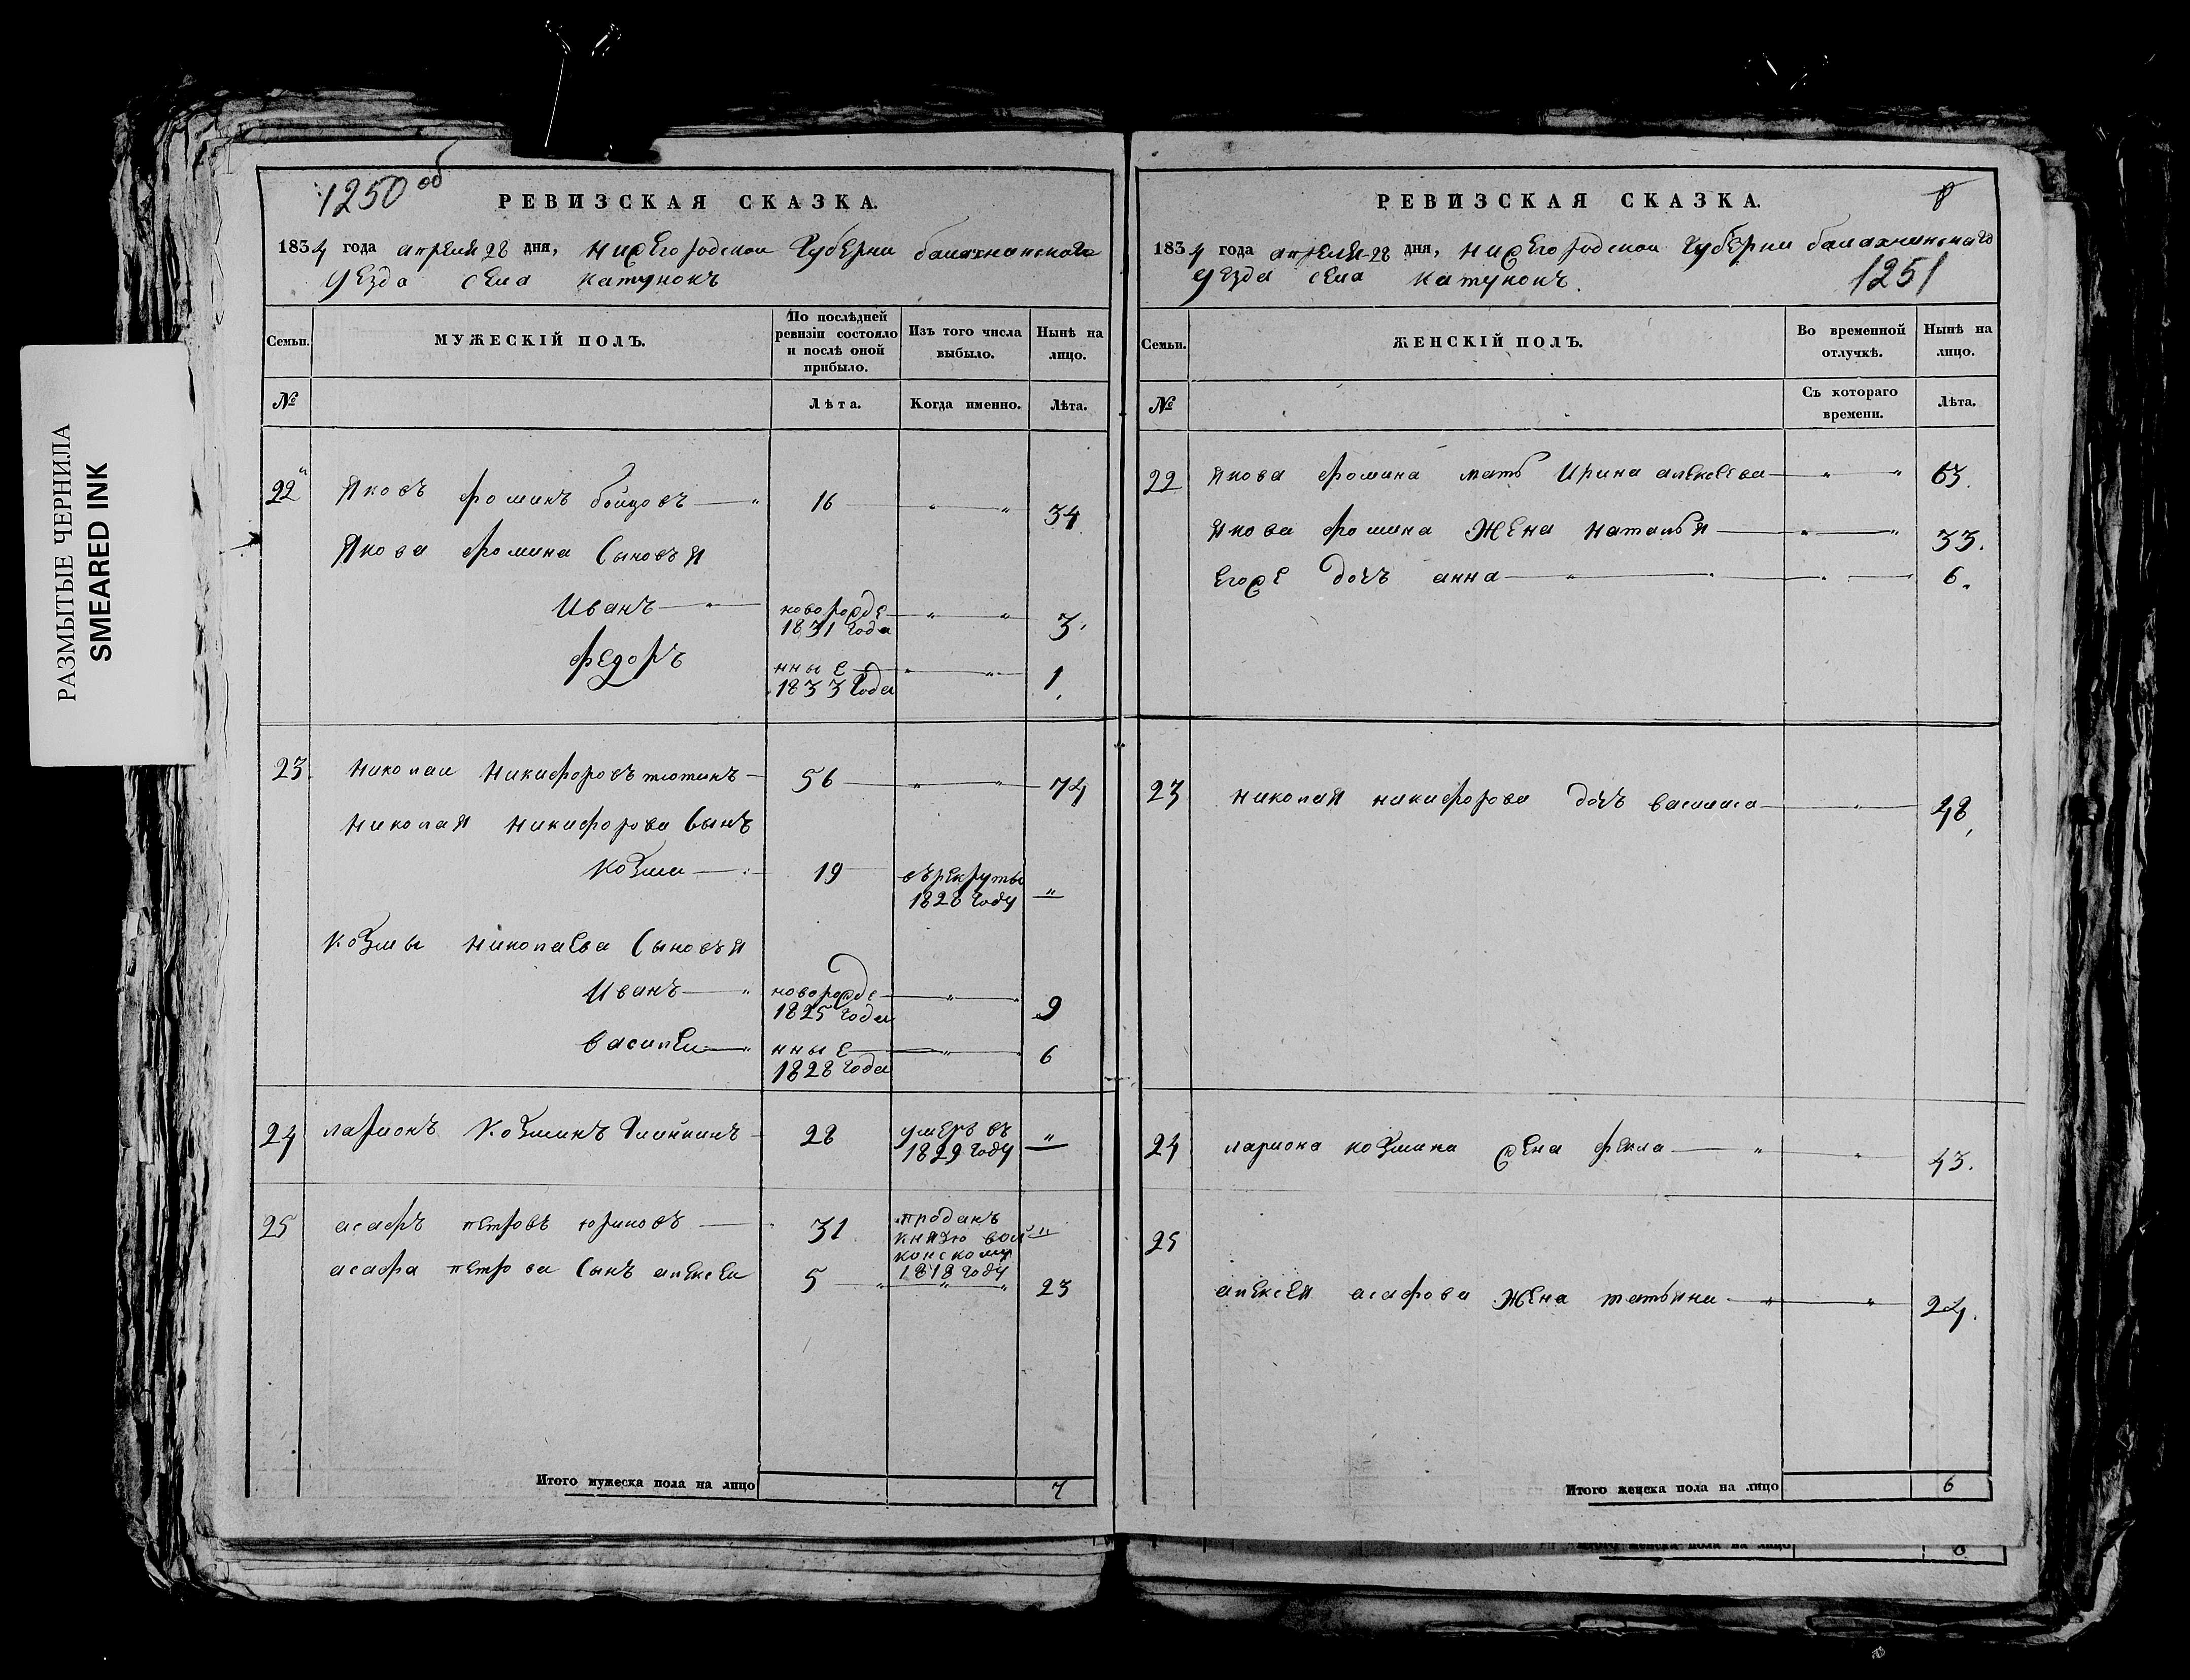 РАЗМЫТЫЕ ЧЕРНИЛА
SMEARED INK
1250 об
РЕВИЗСКАЯ СКАЗКА.
1834 года апреля 28 дня, нижегородской губерни балахнинскаго
уезда села катунокъ
Семьи.
МУЖЕСКІЙ ПОЛЪ.
По послѣдней ревизіи состояло и послѣ оной прибыло.
Изъ того числа выбыло.
Нынѣ на лицо.
№
Лѣта.
Когда именно.
Лѣта.
22 Яковъ фоминъ бойцовъ 16 34
Якова фомина сыновья
Иванъ новорожде 3
1831 года
федоръ нные 1
1833 года
23 николаи никифоровъ тютинъ 56 74
николая никифорова сынъ
козма 19 въ рекруты
1828 году
козмы николаева сыновья
Иванъ новорожде 9
1825 года
василеи нные 6
1828 года
24 ларионъ козминъ 28 умеръ въ
1829 году
25 асафъ петровъ юриновъ 31 проданъ
князю вол
конскому
1818 году
асафа петрова сынъ алексеи 5 23
Итого мужеска пола на лицо 7
РЕВИЗСКАЯ СКАЗКА.
8
1834 года апреля 28 дня, нижегородскои губерни балахнинскаго
уезда села катунокъ.
1251
Семьи.
ЖЕНСКІЙ ПОЛЪ.
Во временной отлучкѣ.
Нынѣ на лицо.
№
Съ котораго времени.
Лѣта.
22 Якова фомина мать Ирина алексеева 63.
Якова фомина жена наталья 33.
егоже дочь анна 6.
23 николая никифорова дочь василиса 48
24 лариона козмина жена фекла 43.
25
алексея асафова жена татьяна 24.
Итого женска пола на лицо 6
Итого женска пола на лицо 6